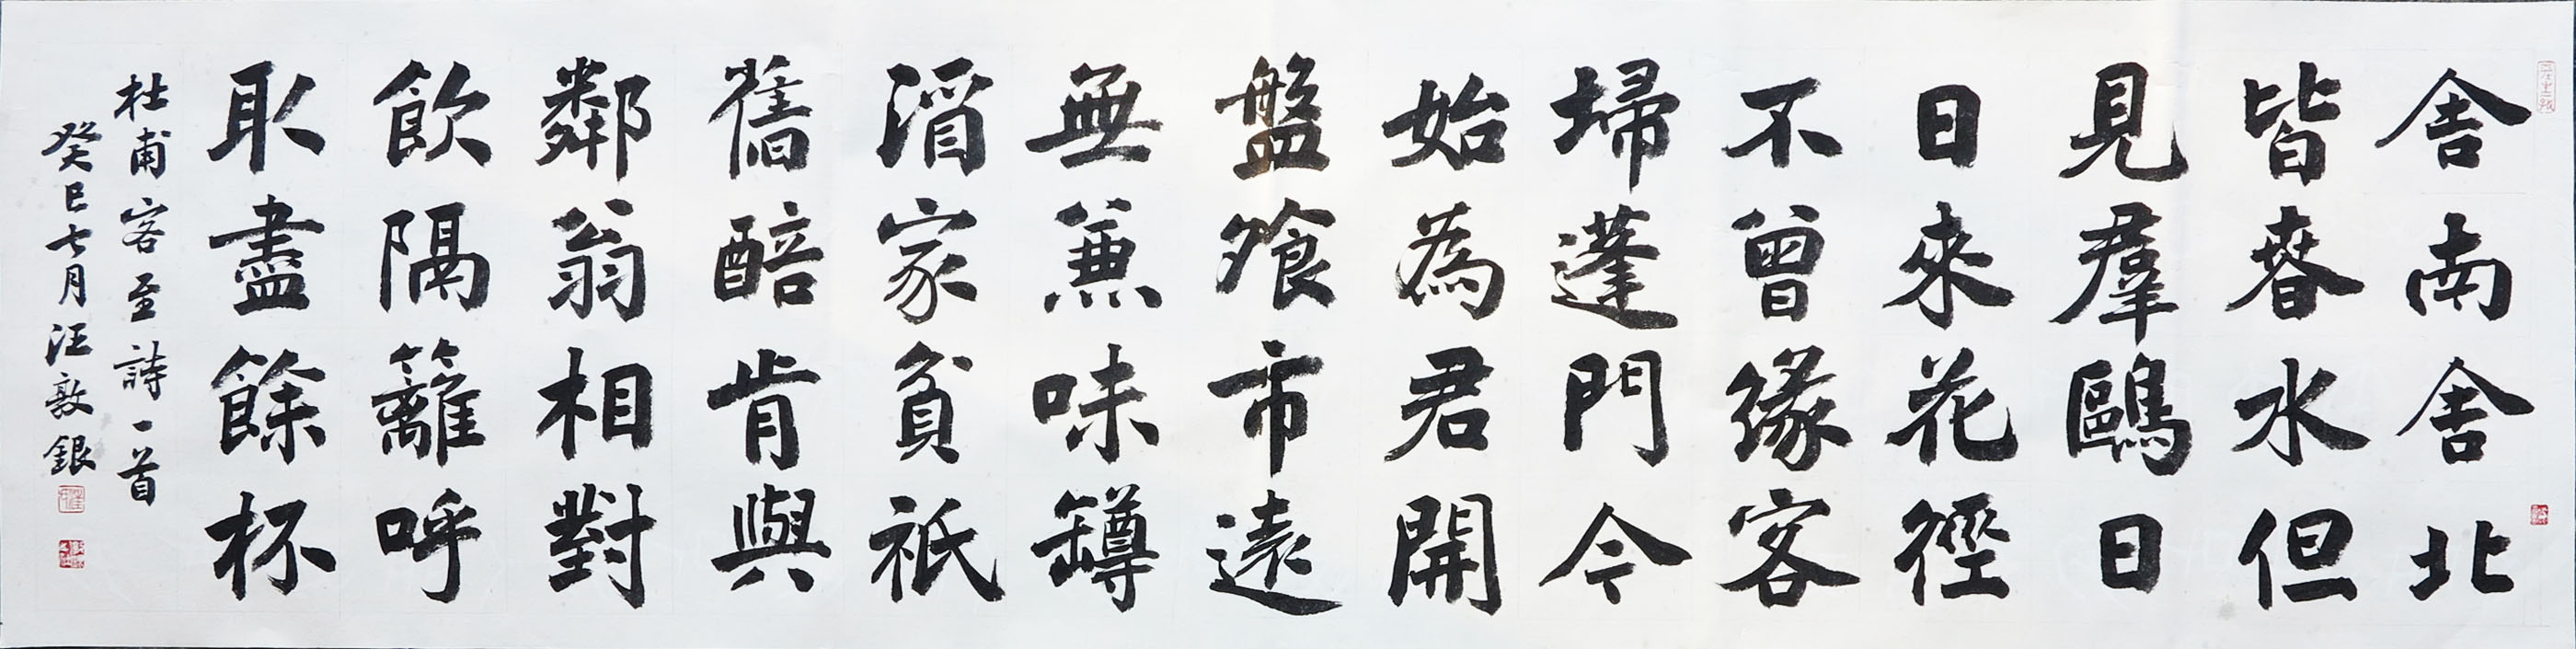 舍南舍北
皆春水但
見羣鷗日
日來花徑
不曾緣客
埽蓬門今
始為君開
盤飧市遠
無兼味罇
酒家貧祇
舊醅肯與
鄰翁相對
飲隔籬呼
取盡餘杯
杜甫客至詩一首
癸巳七月汪敦銀